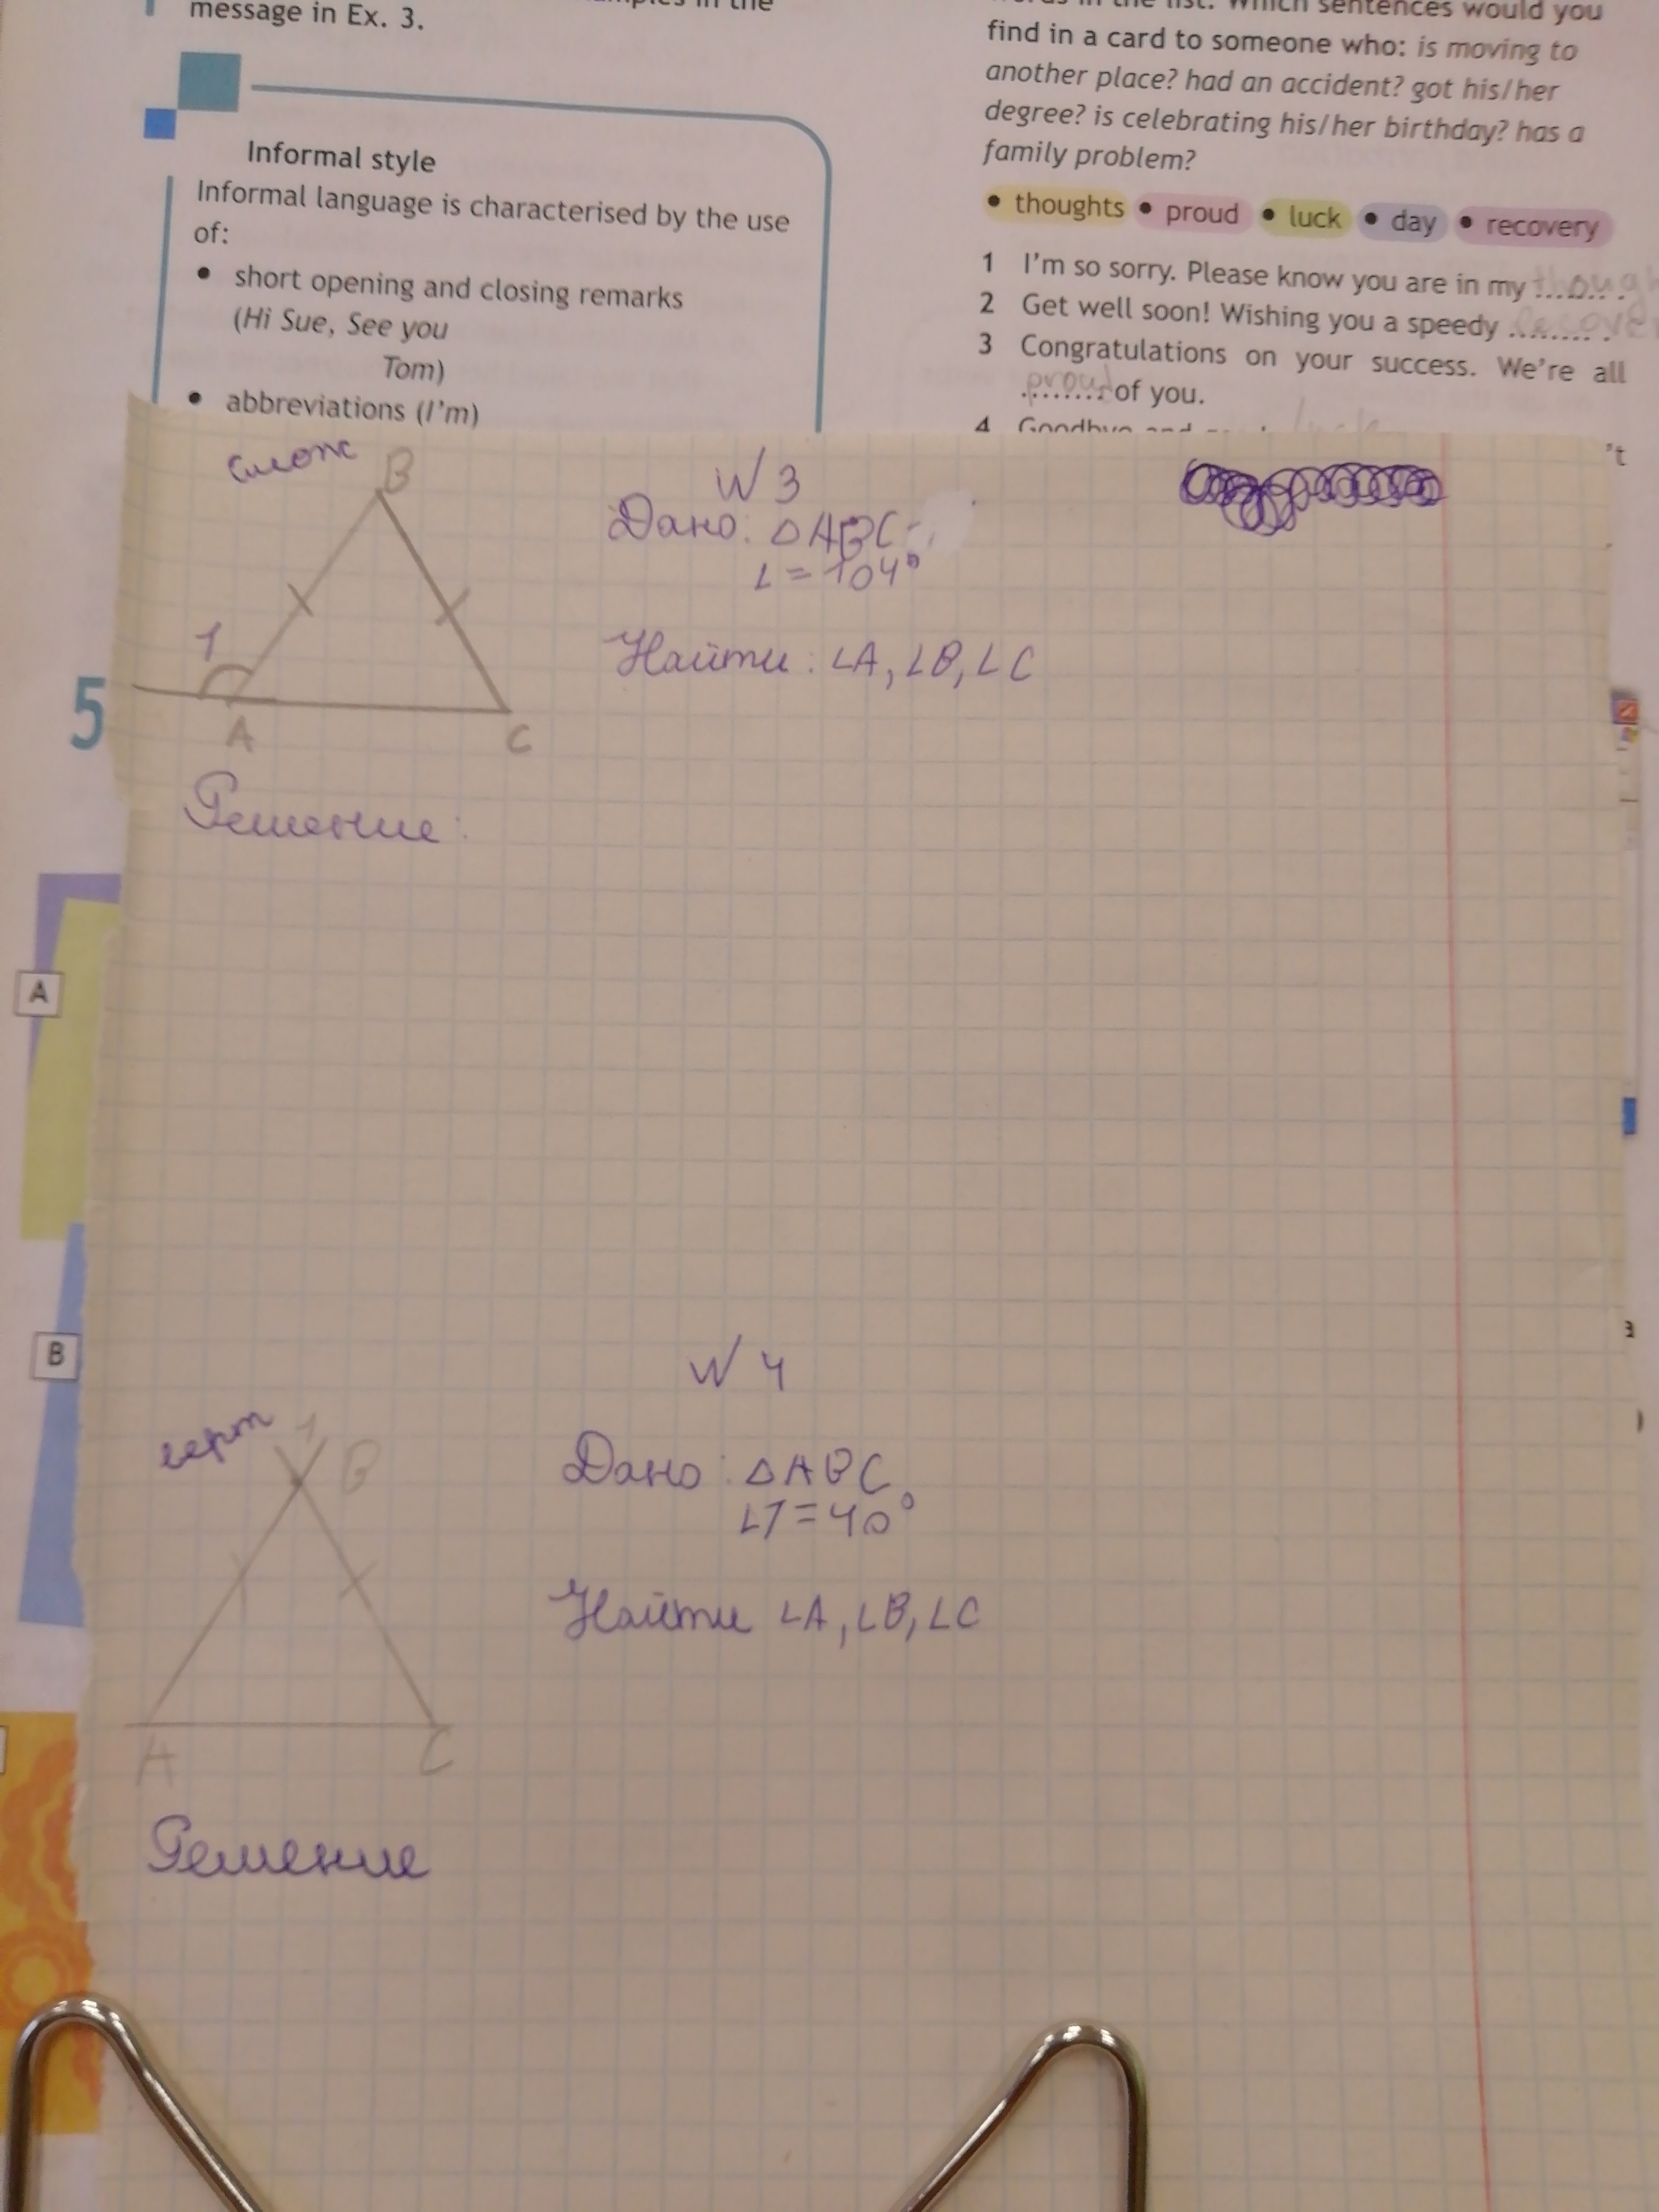 message in Ex. 3.
Informal style
Informal language is characterised by the use
of:
• short opening and closing remarks
(Hi Sue, See you
Tom)
• abbreviations (I'm)
find in a card to someone who: is moving to
another place? had an accident? got his/her
degree? is celebrating his/her birthday? has a
family problem?
• thoughts • proud • luck • day • recovery
1 I'm so sorry. Please know you are in my ........ .
2 Get well soon! Wishing you a speedy ........ .
3 Congratulations on your success. We're all
proud of you.
4 Goodbye and
't
5
A
B
смеж
B
1
A
C
N 3
Дано: △ABC
∠ = 104°
Найти: ∠A, ∠B, ∠C
Решение:
N 4
верт
1
B
A
C
Дано: △ABC
∠1=40°
Найти ∠A, ∠B, ∠C
Решение